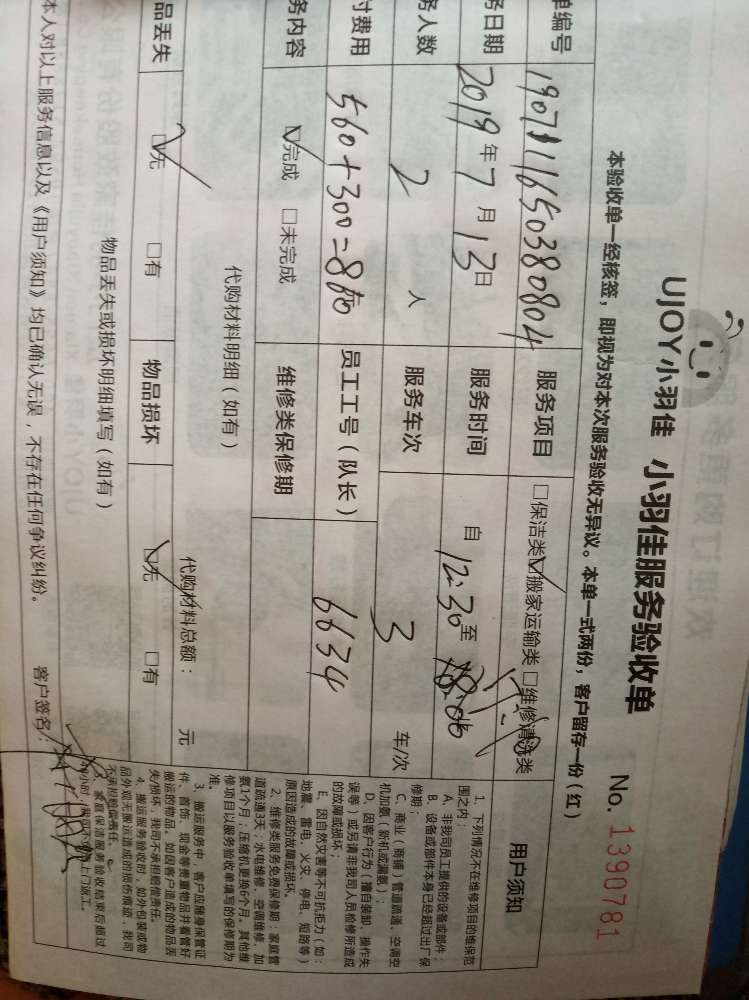 UJOY小羽佳 小羽佳服务验收单
No. 1390781
本验收单一经核签，即视为对本次服务验收无异议。本单一式两份，客户留存一份（红）
单编号
服务项目 □保洁类 ☑搬家运输类 □维修清洗类
务日期 2019年7月13日
服务时间 自 12:30 至
务人数 2 人
服务车次 3 车/次
付费用 560+300=860
员工工号（队长） 6634
务内容 ☑完成 □未完成
维修类保修期
代购材料明细（如有）
代购材料总额： 元
品丢失 ☑无 □有
物品损坏 ☑无 □有
物品丢失或损坏明细填写（如有）
本人对以上服务信息以及《用户须知》均已确认无误，不存在任何争议纠纷。
客户签名：
用户须知
1、下列情况不在维修项目的维保范
围之内：
A、非我司员工提供的设备或部件；
B、设备或部件本身已经超过出厂保
修期；
C、商业（商铺）管道疏通、空调空
机加氨（新机或漏氨）；
D、因客户行为（擅自装卸、操作失
误等）或另请非我司人员检修所造成
的故障或损坏；
E、因自然灾害等不可抗拒力（如：
地震、雷电、火灾、停电、短路等）
原因造成的故障或损坏。
2、维修类服务免费保修期：家庭管
道疏通3天；水电维修、空调维修、加
氨1个月；压缩机更换6个月。其他维
修项目以服务验收单填写的保修期为
准。
3、搬运服务中，客户应随身保管证
件、首饰、现金等贵重物品并看管好
搬运的物品。如因客户造成的物品丢
失/损坏，我司不承担赔偿责任。
4、搬运服务验收时，如外包装或物
品外观无搬运造成的损伤痕迹，我司
不承担赔偿责任。
5、家庭保洁服务验收结束后超过